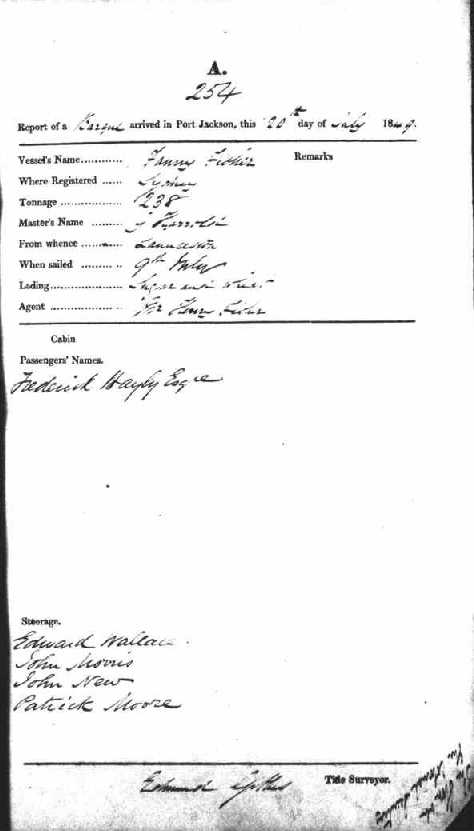 A.
254
Report of a Barque arrived in Port Jackson, this 20th day of July 1849.
Vessel's Name............ Fanny Fisher Remarks
Where Registered ...... Sydney
Tonnage .................. 238
Master's Name ........ J
From whence ............ Launceston
When sailed .......... 9th July
Lading.................... Sugar and wheat
Agent .................... Mr Henry Fisher
Cabin
Passengers' Names.
Frederick Hayly Esqre
Steerage.
Edward Wallace
John Morris
John New
Patrick Moore
Edmund Tide Surveyor.